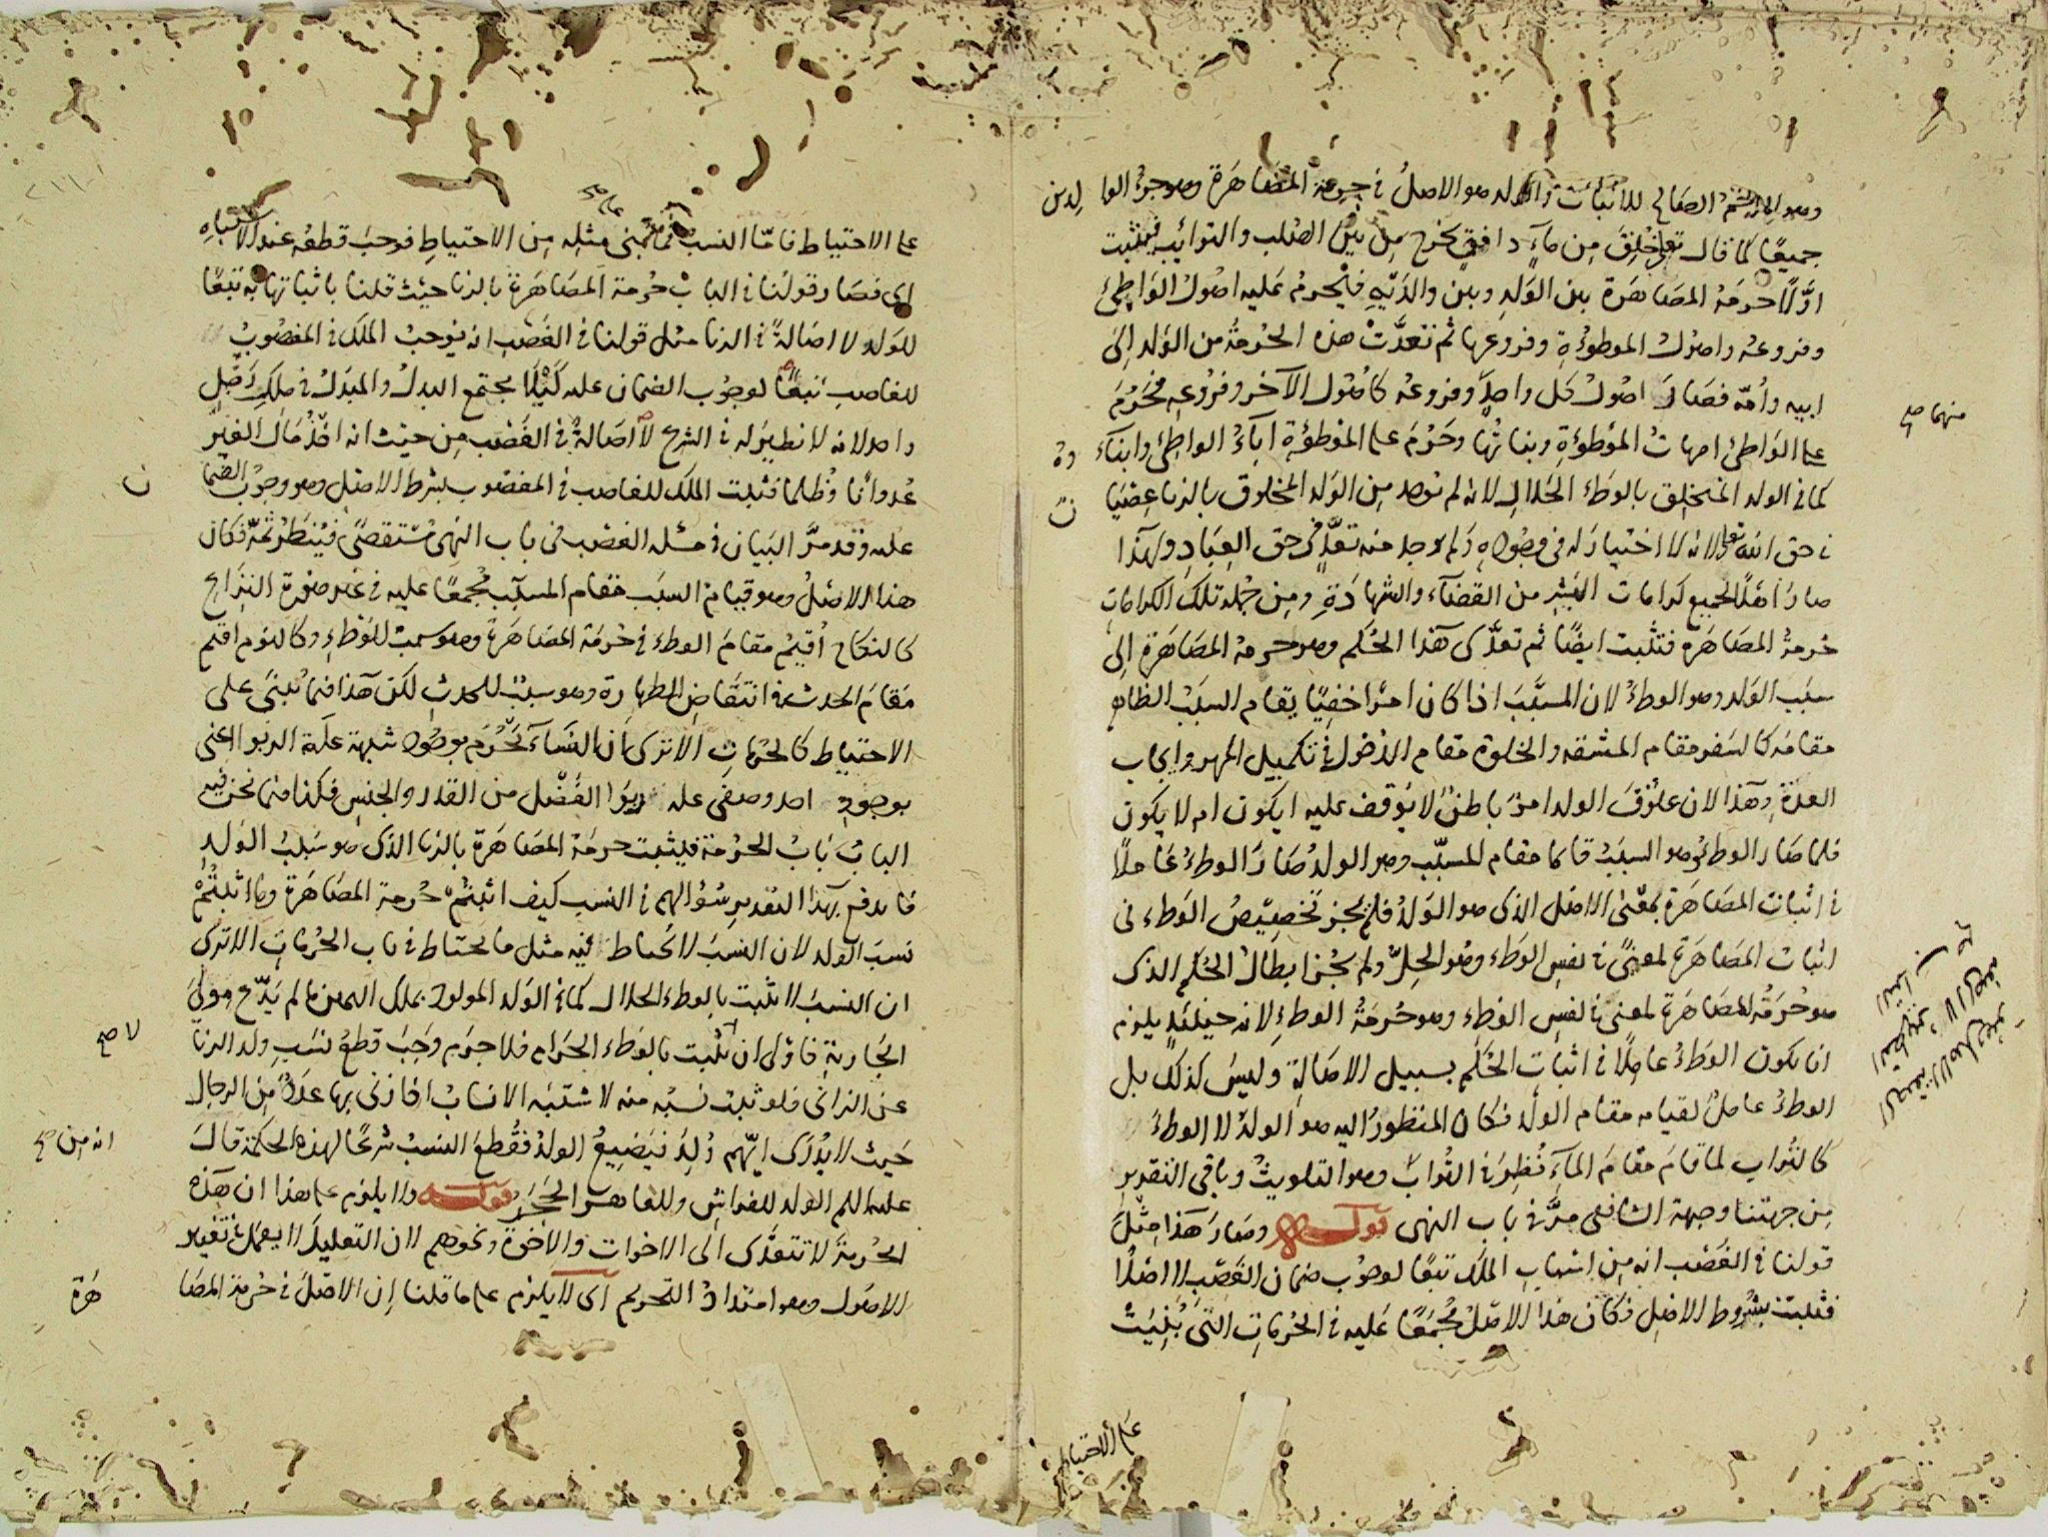 وهو الصالح للاثبات والولد هو الاصل في حرمة المصاهرة وهو جزؤ الوالدين
جميعًا كما قال تعالى خلق من مآء دافق يخرج من بين الصلب والترائب فيثبت
اوّلًا حرمة المصاهرة بين الولد وبين والدَيْهِ فيحرم عليه اصول الواطئ
وفروعه واصول الموطوءة وفروعها ثم تعدَّت هذه الحرمة من الولد الى
ابيه وأمّه فصار اصول كل واحد وفروعه كاصول الآخر وفروعه فحرم
على الواطئ امهات الموطوءة وبناتها وحرم على الموطوءة آباء الواطئ وابناؤه
كما في الولد المنخلق بالوطء الحلال لانه لم يوجد من الولد المخلوق بالزنا عصيان
في حق الله تعالى لانه لا اختيار له في وجوده ولم يوجد منه تعدٍّ في حق العباد ولهذا
صار اهلًا لجميع كرامات البشر من القضآء والشهادة ومن جملة تلك الكرامات
حرمة المصاهرة فتثبت ايضًا ثم تعدّى هذا الحكم وهو حرمة المصاهرة الى
سبب الولد وهو الوطء لان المسبَّب اذا كان امرًا خفيًا يقام السبب الظاهر
مقامه كالسفر مقام المشقة والخلوة مقام الدخول في تكميل المهر وايجاب
العدة وهذا لان علوق الولد امر باطن لا يوقف عليه ايكون ام لا يكون
فلما صار الوطء وهو السبب قائما مقام المسبّب وهو الولد صار الوطء عاملًا
في اثبات المصاهرة بمعنى الاصل الذي هو الولد فلم يجز تخصيص الوطء في
اثبات المصاهرة لمعنى في نفس الوطء وهو الحلّ ولم يجز ابطال الحكم الذي
هو حرمة المصاهرة لمعنى في نفس الوطء وهو حرمة الوطء لانه حينئذ يلزم
ان يكون الوطء عاملًا في اثبات الحكم بسبيل الاصالة وليس كذلك بل
الوطء عامل لقيامه مقام الولد فكان المنظور اليه هو الولد لا الوطء
كالتراب لما قام مقام المآء نُظِرَ في التراب وهو التلويث وباقي التقدير
من جهتنا وجهة الشافعي مرّ في باب النهي قوله وصار هذا مثل
قولنا في الغصب انه من اسباب الملك تبعًا لوجوب ضمان الغصب لا اصلًا
فثبت بشروط الاصل فكان هذا الاصل مجمعًا عليه في الحرمات التي بنيت
منهما صح
على الاحتياط
على الاحتياط فامّا النسب فما يبنى مثله من الاحتياط فوجب قطعه عند الاشتباه
اي فصار قولنا في الباب حرمة المصاهرة بالزنا حيث قلنا باثباتها به تبعًا
للولد لا اصالةً في الزنا مثل قولنا في الغصب انه يوجب الملك في المغصوب
للغاصب تبعًا لوجوب الضمان عليه كَيْلا يجتمع البدل والمبدل في ملك رجل
واحد لانه لا نظير له في الشرح لا اصالة في الغصب من حيث انه اخذ مال الغير
عدوانا وظلما فثبت الملك للغاصب في المغصوب بشرط الاصل وهو وجوب الضمان
عليه وقد مرّ البيان في مسئلة الغصب في باب النهى مستقصىً فيُنظر ثمّة فكان
هذا الاصل وهو قيام السبب مقام المسبّب مجمعًا عليه في غير صورة النزاع
كالنكاح أقيم مقام الوطء في حرمة المصاهرة وهو سبب للوطء وكالنوم اقيم
مقام الحدث في انتقاض الطهارة وهو سبب للحدث لكن هذا فيما يبنى على
الاحتياط كالحرمات الا ترى ان النسآء تحرم بوجود شبهة علّة الربوا اعنى
بوجود احد وصفي علة ربوا الفضل من القدر والجنس فكذا فيما نحن فيه
الباب باب الحرمة فيثبت حرمة المصاهرة بالزنا الذي هو سبب الولد
فاندفع بهذا التقدير سؤالهم في النسب كيف اثبتم حرمة المصاهرة وما اثبتم
نسب الولد لان النسب لا يحتاط فيه مثل ما يحتاط في باب الحرمات الا ترى
ان النسب لا يثبت بالوطء الحلال كما في الولد المولود بملك اليمين ما لم يدّع مولى
الجارية فاولى ان لا يثبت بالوطء الحرام فلا جرم وجب قطع نسب ولد الزنا
عن الزاني فلو ثبت نسبه منه لاشتبه الانساب اذا زنى بها عدد من الرجال
حيث لا يدرى ايهم انه من وُلد فيضيع الولد فقُطع النسب شرعًا لهذه الحكمة قال
عليه السلم الولد للفراش وللعاهر الحجر قوله ولا يلزم على هذا ان هذه
الحرمة لا تتعدّى الى الاخوات والاخوة ونحوهم لان التعليل لا يعمل في تغيير
الاصول وهو امتداد التحريم اى لا يلزم على ما قلنا ان الاصل في حرمة المصاهرة
لا صح
انه من صح